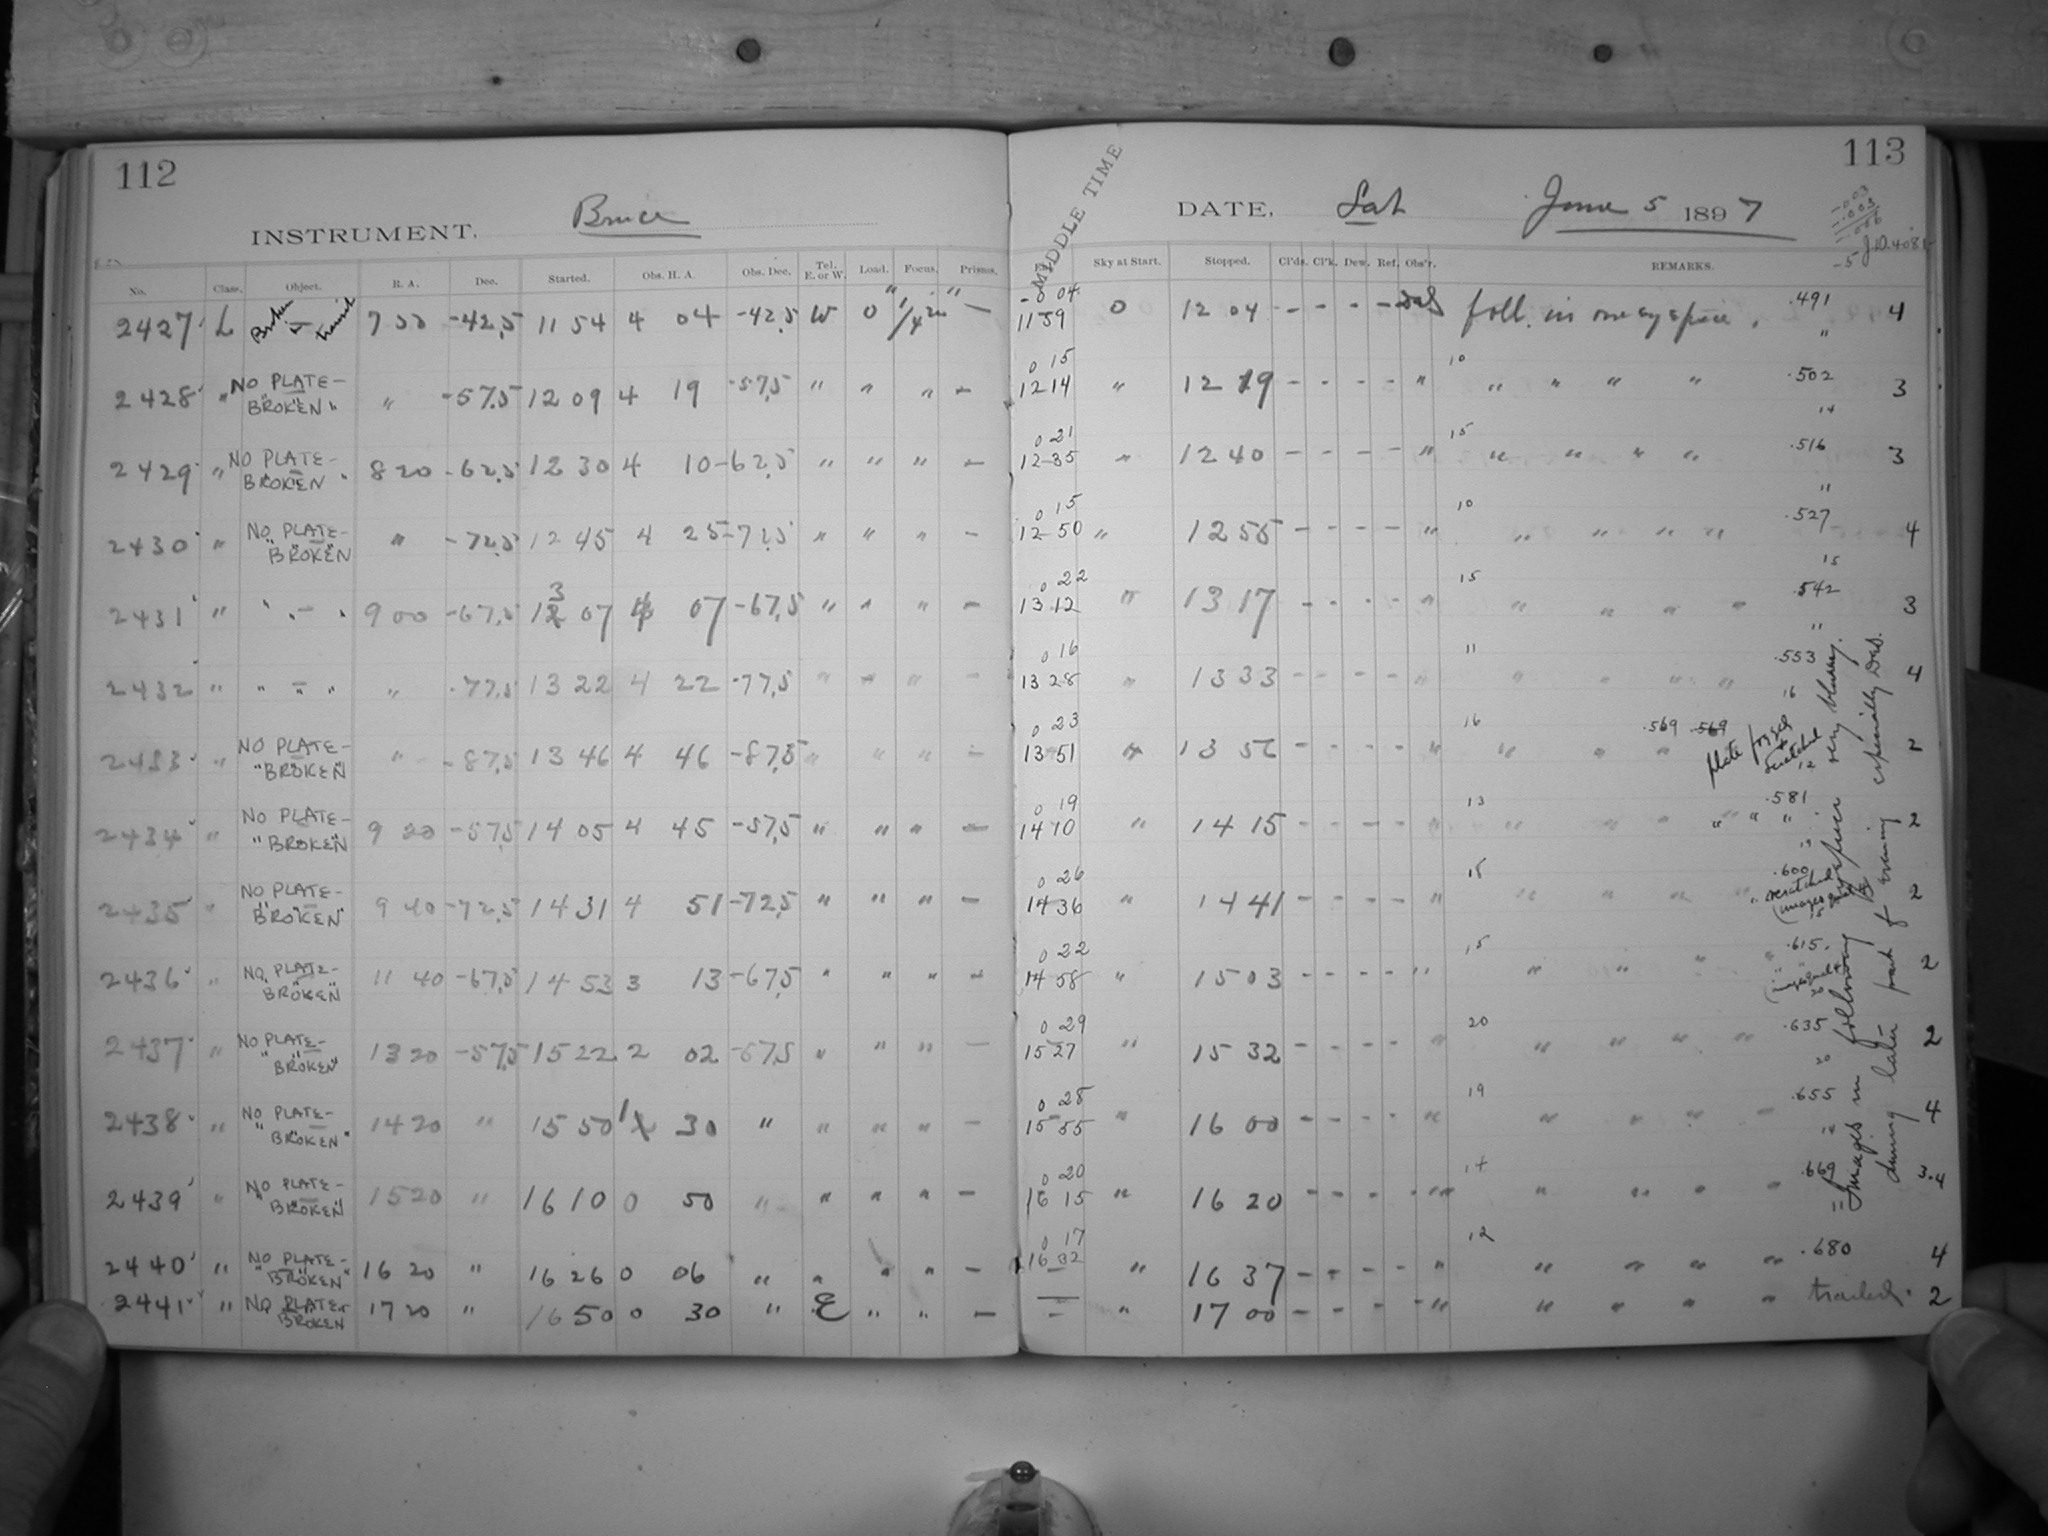 112
INSTRUMENT. Bruce
No. Class. Object. R. A. Dec. Started. Obs. H. A. Obs. Dec. Tel. E. or W. Load. Focus. Prisms.
2427 L Broken in transit 7 00 -42.5 11 54 4 04 -42.5 W 0 —
2428 " NO PLATE - BROKEN " -57.5 12 09 4 19 -57.5 " " " -
2429 " NO PLATE - BROKEN 8 20 -62.5 12 30 4 10 -62.5 " " " -
2430 " NO PLATE - BROKEN " -72.5 12 45 4 25 -72.5 " " " -
2431 " " - " 9 00 -67.5 13 07 4 07 -67.5 " " " -
2432 " " - " " -77.5 13 22 4 22 -77.5 " " " -
2433 " NO PLATE - BROKEN " -87.5 13 46 4 46 -87.5 " " " -
2434 " NO PLATE - BROKEN 9 20 -57.5 14 05 4 45 -57.5 " " " -
2435 " NO PLATE - BROKEN 9 40 -72.5 14 31 4 51 -72.5 " " " -
2436 " NO PLATE - BROKEN 11 40 -67.5 14 53 3 13 -67.5 " " " -
2437 " NO PLATE - BROKEN 13 20 -57.5 15 22 2 02 -57.5 " " " -
2438 " NO PLATE - BROKEN 14 20 " 15 50 1 30 " " " " -
2439 " NO PLATE - BROKEN 15 20 " 16 10 0 50 " " " " -
2440 " NO PLATE - BROKEN 16 20 " 16 26 0 06 " " " " -
2441 " NO PLATE - BROKEN 17 20 " 16 50 0 30 " E " " -
113
MIDDLE TIME
DATE, Sat June 5 1897
-.003
-.003
-.006
J.D. 4081
-5
Sky at Start. Stopped. Cl'ds. Cl'k. Dew. Ref. Obs'r. REMARKS.
-0 04
11 59 0 12 04 - - - - foll. in one eyepiece. .491 4
0 15 10 "
12 14 " 12 19 - - - - " " " " " .502 3
0 21 15 14
12 35 " 12 40 - - - - " " " " " .516 3
0 15 10 11
12 50 " 12 55 - - - - " " " " " .527 4
0 22 15 15
13 12 " 13 17 - - - - " " " " " .542 3
0 16 11 11
13 28 " 13 33 - - - - " " " " " .553 4
0 23 16 16
13 51 " 13 56 - - - - " " " " .569 .569 plate fogged & scratched 2
0 19 13 12
14 10 " 14 15 - - - - " " " " " " " .581 2
0 26 18 19
14 36 " 14 41 - - - - " " " " .600 " scratched 2
0 22 15 15
14 58 " 15 03 - - - - " " " " .615 2
0 29 20 20
15 27 " 15 32 - - - - " " " " " .635 2
0 28 19 20
15 55 " 16 00 - - - - " " " " " .655 4
0 20 14 14
16 15 " 16 20 - - - - " " " " " .669 3.4
0 17 12 11
16 32 " 16 37 - - - - " " " " " .680 4
- " 17 00 - - - - " " " " " trailed. 2
Images in following eyepiece very blurry.
during later part of evening especially bad.